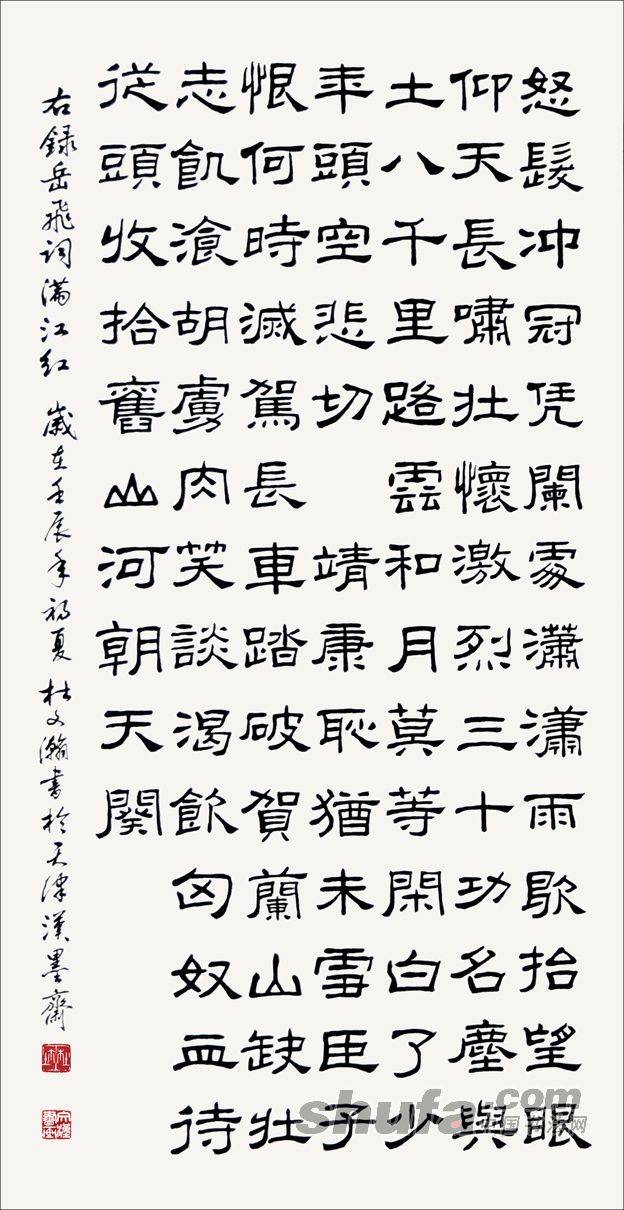 怒髮冲冠凭闌處瀟瀟雨歇抬望眼
仰天長嘯壯懷激烈三十功名塵與
土八千里路雲和月莫等閑白了少
年頭空悲切 靖康恥猶未雪臣子
恨何時滅駕長車踏破賀蘭山缺壯
志飢湌胡虜肉笑談渴飲匈奴血待
従頭收拾舊山河朝天闕
右録岳飛詞滿江紅 歲在壬辰年初夏 杜文瀚書於天津漢墨齋
shufa.com
中国书法网